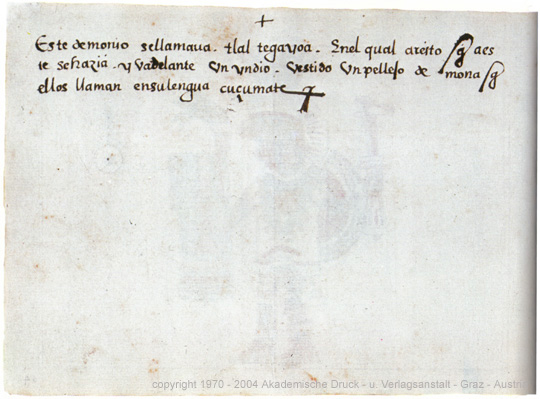 Este demonio sellamava. tlal tegavoa. Enel qual areito q̃ aes
te sehazia. y vadelante un yndio. vestido un pellejo de mona q̃
ellos llaman ensulengua cuçumate
copyright 1970 - 2004 Akademische Druck - u. Verlagsanstalt - Graz - Austri